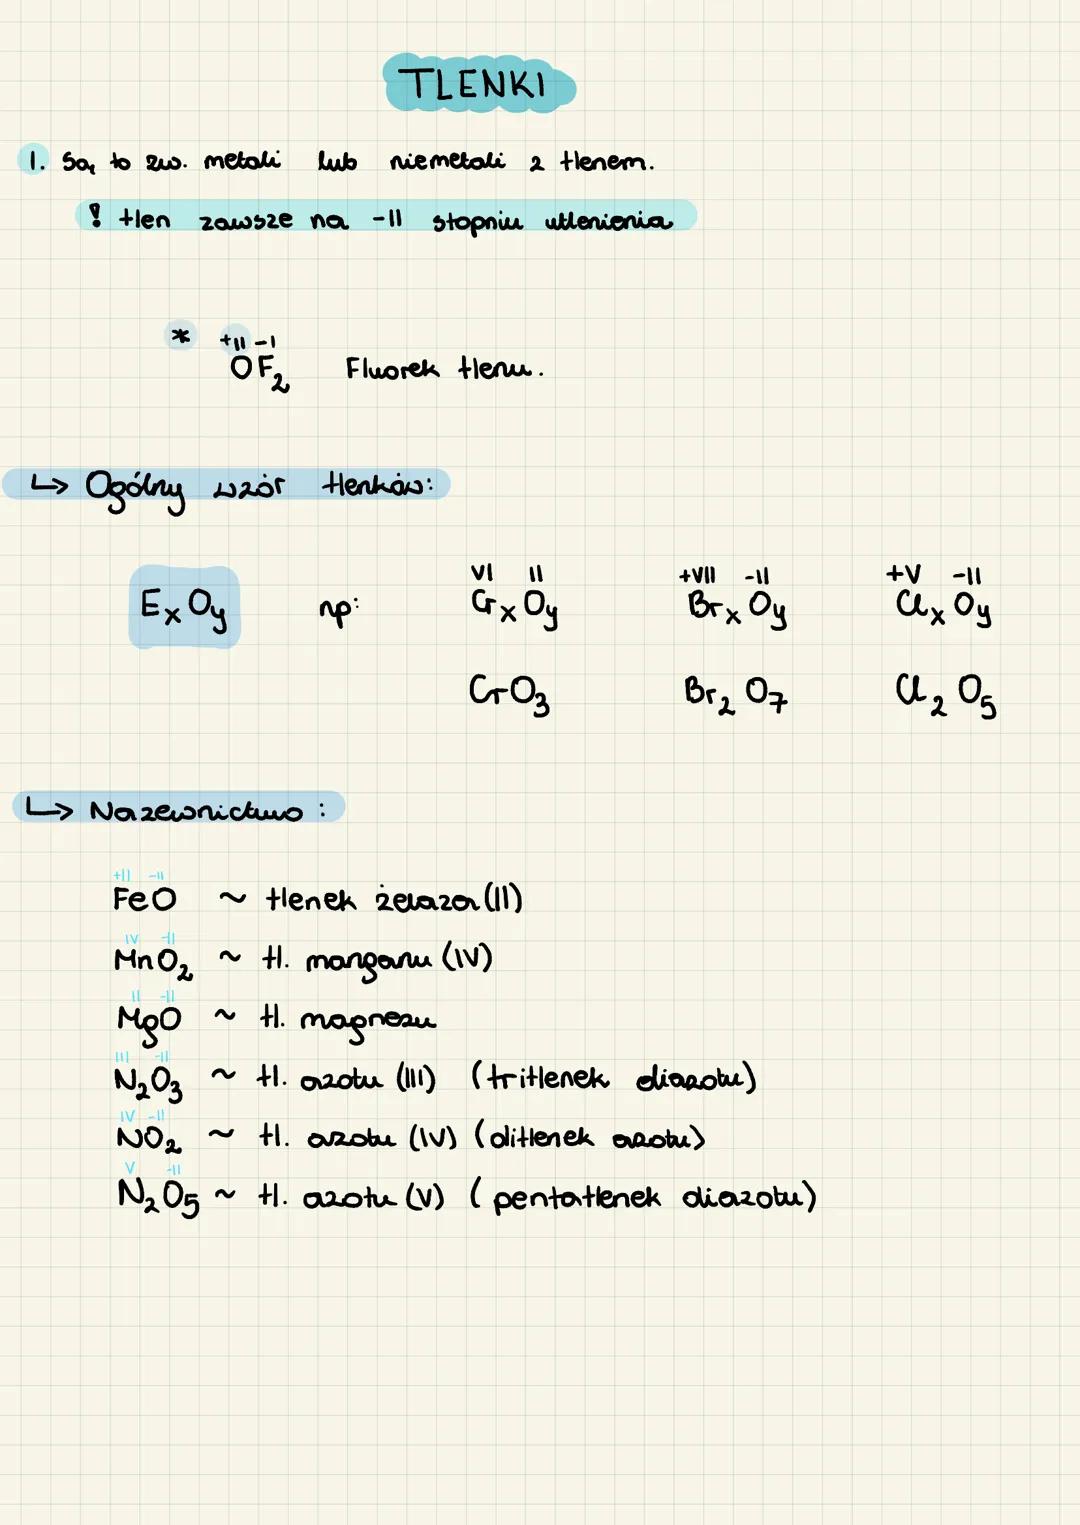 TLENKI
1. Są to zw. metali lub niemetali z tlenem.
! tlen zawsze na -II stopniu utlenienia
* +II -I
OF2 Fluorek tlenu.
↳ Ogólny wzór tlenków:
VI II +VII -II +V -II
ExOy np: CrxOy BrxOy ClxOy
CrO3 Br2O7 Cl2O5
↳ Nazewnictwo:
+II -II
FeO ~ tlenek żelaza (II)
IV -II
MnO2 ~ tl. manganu (IV)
II -II
MgO ~ tl. magnezu
III -II
N2O3 ~ tl. azotu (III) (tritlenek diazotu)
IV -II
NO2 ~ tl. azotu (IV) (ditlenek azotu)
V -II
N2O5 ~ tl. azotu (V) (pentatlenek diazotu)